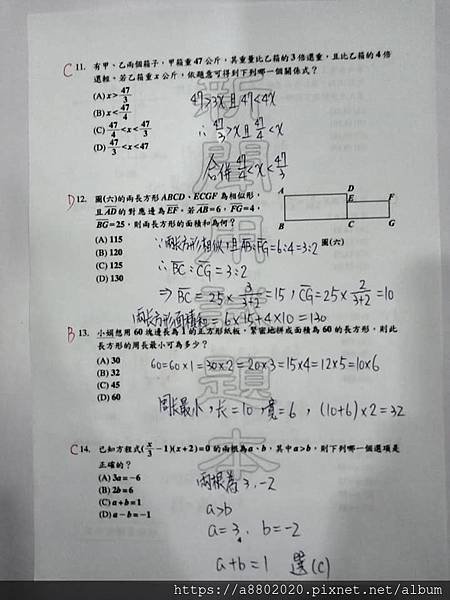 C 11. 有甲、乙兩個箱子，甲箱重47公斤，其重量比乙箱的3倍還重，且比乙箱的4倍
還輕。若乙箱重x公斤，依題意可得到下列哪一個關係式？
(A) x > 47/3
(B) x < 47/4
(C) 47/4 < x < 47/3
(D) 47/3 < x < 47
47>3x且47<4x
∴ 47/3 > x 且 47/4 < x
合併 47/4 < x < 47/3
D 12. 圖(六)的兩長方形ABCD、ECGF為相似形，
且AD的對應邊為EF。若AB=6，FG=4，
BG=25，則兩長方形的面積和為何？
(A) 115
(B) 120
(C) 125
(D) 130
A D
E F
B C G
圖(六)
∵兩長方形相似，且AB:FG=6:4=3:2
∴ BC:CG=3:2
⇒ BC=25×3/(3+2)=15，CG=25×2/(3+2)=10
兩長方形面積和=6×15+4×10=130
B 13. 小娟想用60塊邊長為1的正方形紙板，緊密地拼成面積為60的長方形，則此
長方形的周長最小可為多少？
(A) 30
(B) 32
(C) 45
(D) 60
60=60×1=30×2=20×3=15×4=12×5=10×6
周長最小，長=10，寬=6，(10+6)×2=32
C 14. 已知方程式(x/3-1)(x+2)=0的兩根為a、b，其中a>b，則下列哪一個選項是
正確的？
(A) 3a=-6
(B) 2b=6
(C) a+b=1
(D) a-b=-1
兩根為3,-2
a>b
a=3, b=-2
a+b=1 選(C)
新聞用題本
https://a8802020.pixnet.net/album